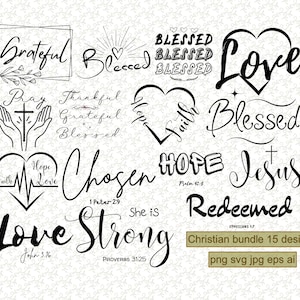 Grateful
Blessed
BLESSED
BLESSED
BLESSED
Love
Pray
Thankful
Grateful
Blessed
Hope
Faith
Blessed
Hope
Faith
Love
Chosen
1 Peter 2:9
HOPE
Psalm 62:5
Jesus
Redeemed
Love
John 3:16
She is
Strong
Proverbs 31:25
Christian bundle 15 desi
png svg jpg eps ai